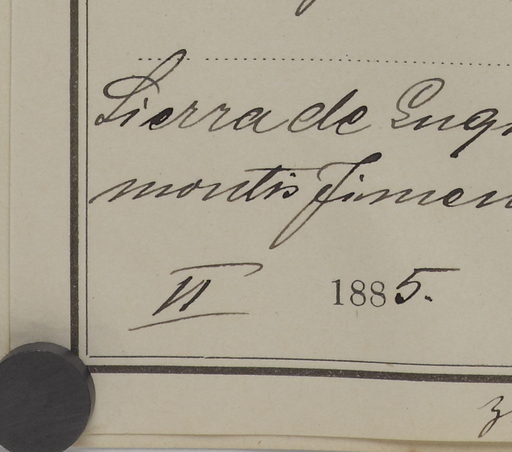 Sierra de Lug
montis Jimen
VI 1885.
3